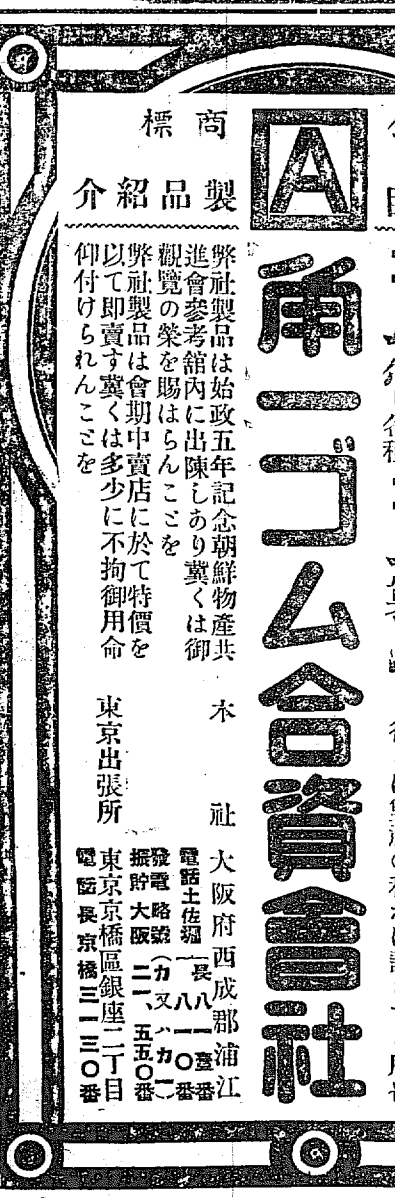 A
角一ゴム合資會社
商標
製品紹介
弊社製品は始政五年記念朝鮮物產共
進會參考館內に出陳しあり冀くは御
觀覽の榮を賜はらんことを
弊社製品は會期中賣店に於て特價を
以て即賣す冀くは多少に不拘御用命
仰付けられんことを
本社
大阪府西成郡浦江
電話土佐堀
長八一壹番
八一〇番
發電略號(カ又ハカ一)
振貯大阪二一、五五〇番
東京出張所
東京京橋區銀座二丁目
電話長京橋三一三〇番